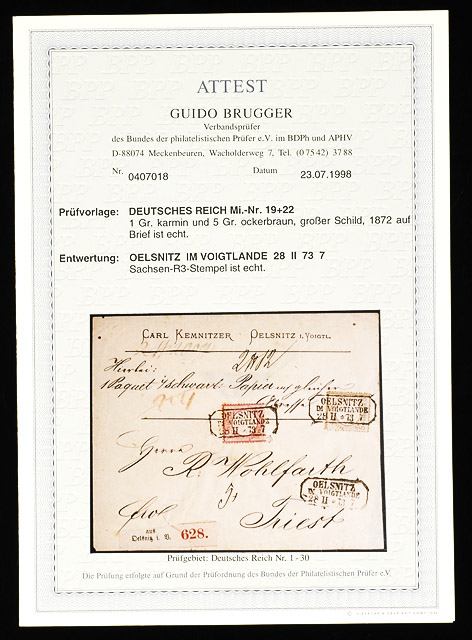 ATTEST
GUIDO BRUGGER
Verbandsprüfer
des Bundes der philatelistischen Prüfer e.V. im BDPh und APHV
D-88074 Meckenbeuren, Wacholderweg 7, Tel. (0 75 42) 37 88
Nr. 0407018 Datum 23.07.1998
Prüfvorlage: DEUTSCHES REICH Mi.-Nr. 19+22
1 Gr. karmin und 5 Gr. ockerbraun, großer Schild, 1872 auf
Brief ist echt.
Entwertung: OELSNITZ IM VOIGTLANDE 28 II 73 7
Sachsen-R3-Stempel ist echt.
CARL KEMNITZER OELSNITZ i. VOIGTL.
Hierbei:
1 Paquet schwarz Papier
OELSNITZ
IM VOIGTLANDE
28 II 73 7
OELSNITZ
IM VOIGTLANDE
28 II 73 7
Herrn
R. Wohlfarth
OELSNITZ
IM VOIGTLANDE
28 II 73 7
Triest
aus
Oelsnitz i. V.
628.
Prüfgebiet: Deutsches Reich Nr. 1-30
Die Prüfung erfolgte auf Grund der Prüfordnung des Bundes der Philatelistischen Prüfer e.V.